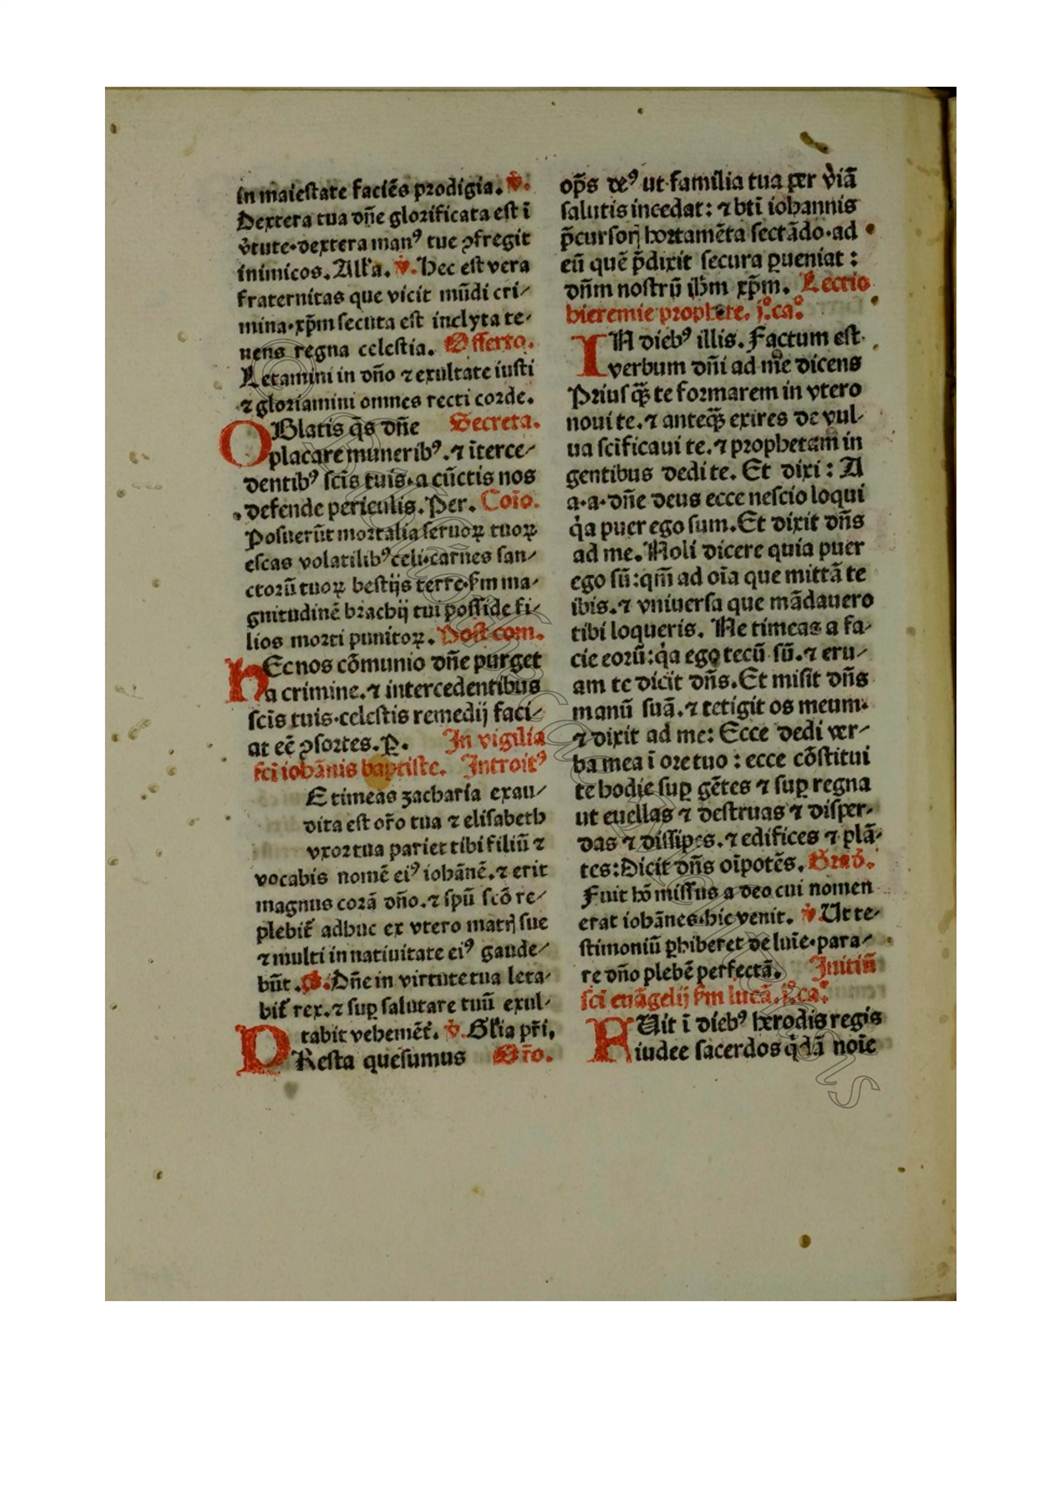 in maiestate faciẽs prodigia. ℣.
Dextera tua dñe glorificata est ĩ
v̉tute·dextera manꝰ tue ↄfregit
inimicos. All'a. ℣. Hec est vera
fraternitas que vicit mũdi cri⸗
mina·xp̃m secuta est inclyta te⸗
nens regna celestia. Offerto.
Letamini in dño ⁊ exultate iusti
⁊ gloriamini omnes recti corde.
OBlatis q̃s dñe Secreta.
placare muneribꝰ.⁊ ĩterce⸗
dentibꝰ scĩs tuis·a cũctis nos
defende periculis. Per. Coĩo.
Posuerũt mortalia seruoꝝ tuoꝝ
escas volatilibꝰ celi·carnes san⸗
ctorũ tuoꝝ bestijs terre·fm ma⸗
gnitudinẽ brachij tui posside fi⸗
lios morti punitoꝝ. Post com.
hEc nos cõmunio dñe purget
a crimine.⁊ intercedentibus
scĩs tuis·celestis remedij faci⸗
at eẽ ↄsortes. P. In vigilia
sci iohãnis baptiste. Introitꝰ
E timeas zacharia exau⸗
dita est or̃o tua ⁊ elisabeth
vxor tua pariet tibi filiũ ⁊
vocabis nomẽ eiꝰ iohãnẽ.⁊ erit
magnus corã dño.⁊ spũ scõ re⸗
plebit̃ adhuc ex vtero matrꝭ sue
⁊ multi in natiuitate eiꝰ gaude⸗
bũt. ps. Dñe in virtute tua leta⸗
bit̃ rex.⁊ suꝑ salutare tuũ exul⸗
tabit vehemẽt̃. ℣. Gl'ia pr̃i,
PResta quesumus Or̃o.
op̃s deꝰ ut familia tua per v̉iã
salutis incedat: ⁊ bti iohannis
p̃cursorꝭ hortamẽta sectãdo·ad
eũ quẽ p̃dixit secura ꝑueniat:
dñm nostrũ ihm xp̃m. Lectio
hieremie prophete. j.º ca.º
IN diebꝰ illis. Factum est
verbum dñi ad me dicens
Priusq̃ te formarem in vtero
noui te.⁊ anteq̃ exires de vul⸗
ua scĩficaui te.⁊ prophetam in
gentibus dedi te. Et dixi: A
a·a·dñe deus ecce nescio loqui
q̉a puer ego sum.Et dixit dñs
ad me. Noli dicere quia puer
ego sũ:qm̃ ad oĩa que mittã te
ibis.⁊ vniuersa que mãdauero
tibi loqueris. Ne timeas a fa⸗
cie eorũ:q̉a ego tecũ sũ.⁊ eru⸗
am te dicit dñs.Et misit dñs
manũ suã.⁊ tetigit os meum·
⁊ dixit ad me: Ecce dedi ver⸗
ba mea ĩ ore tuo: ecce cõstitui
te hodie suꝑ gẽtes ⁊ suꝑ regna
ut euellas ⁊ destruas ⁊ disper⸗
das ⁊ dissipes.⁊ edifices ⁊ plã⸗
tes:Dicit dñs oĩpotẽs. Grad̃.
Fuit hõ missus a deo cui nomen
erat iohãnes·hic venit. ℣ Ut te⸗
stimoniũ ꝑhiberet de luĩe·para⸗
re dño plebẽ perfectã. Initiũ
sci euãgelij fm lucã. j.º ca.º
FUit ĩ diebꝰ herodis regis
iudee sacerdos q̉dã noĩe